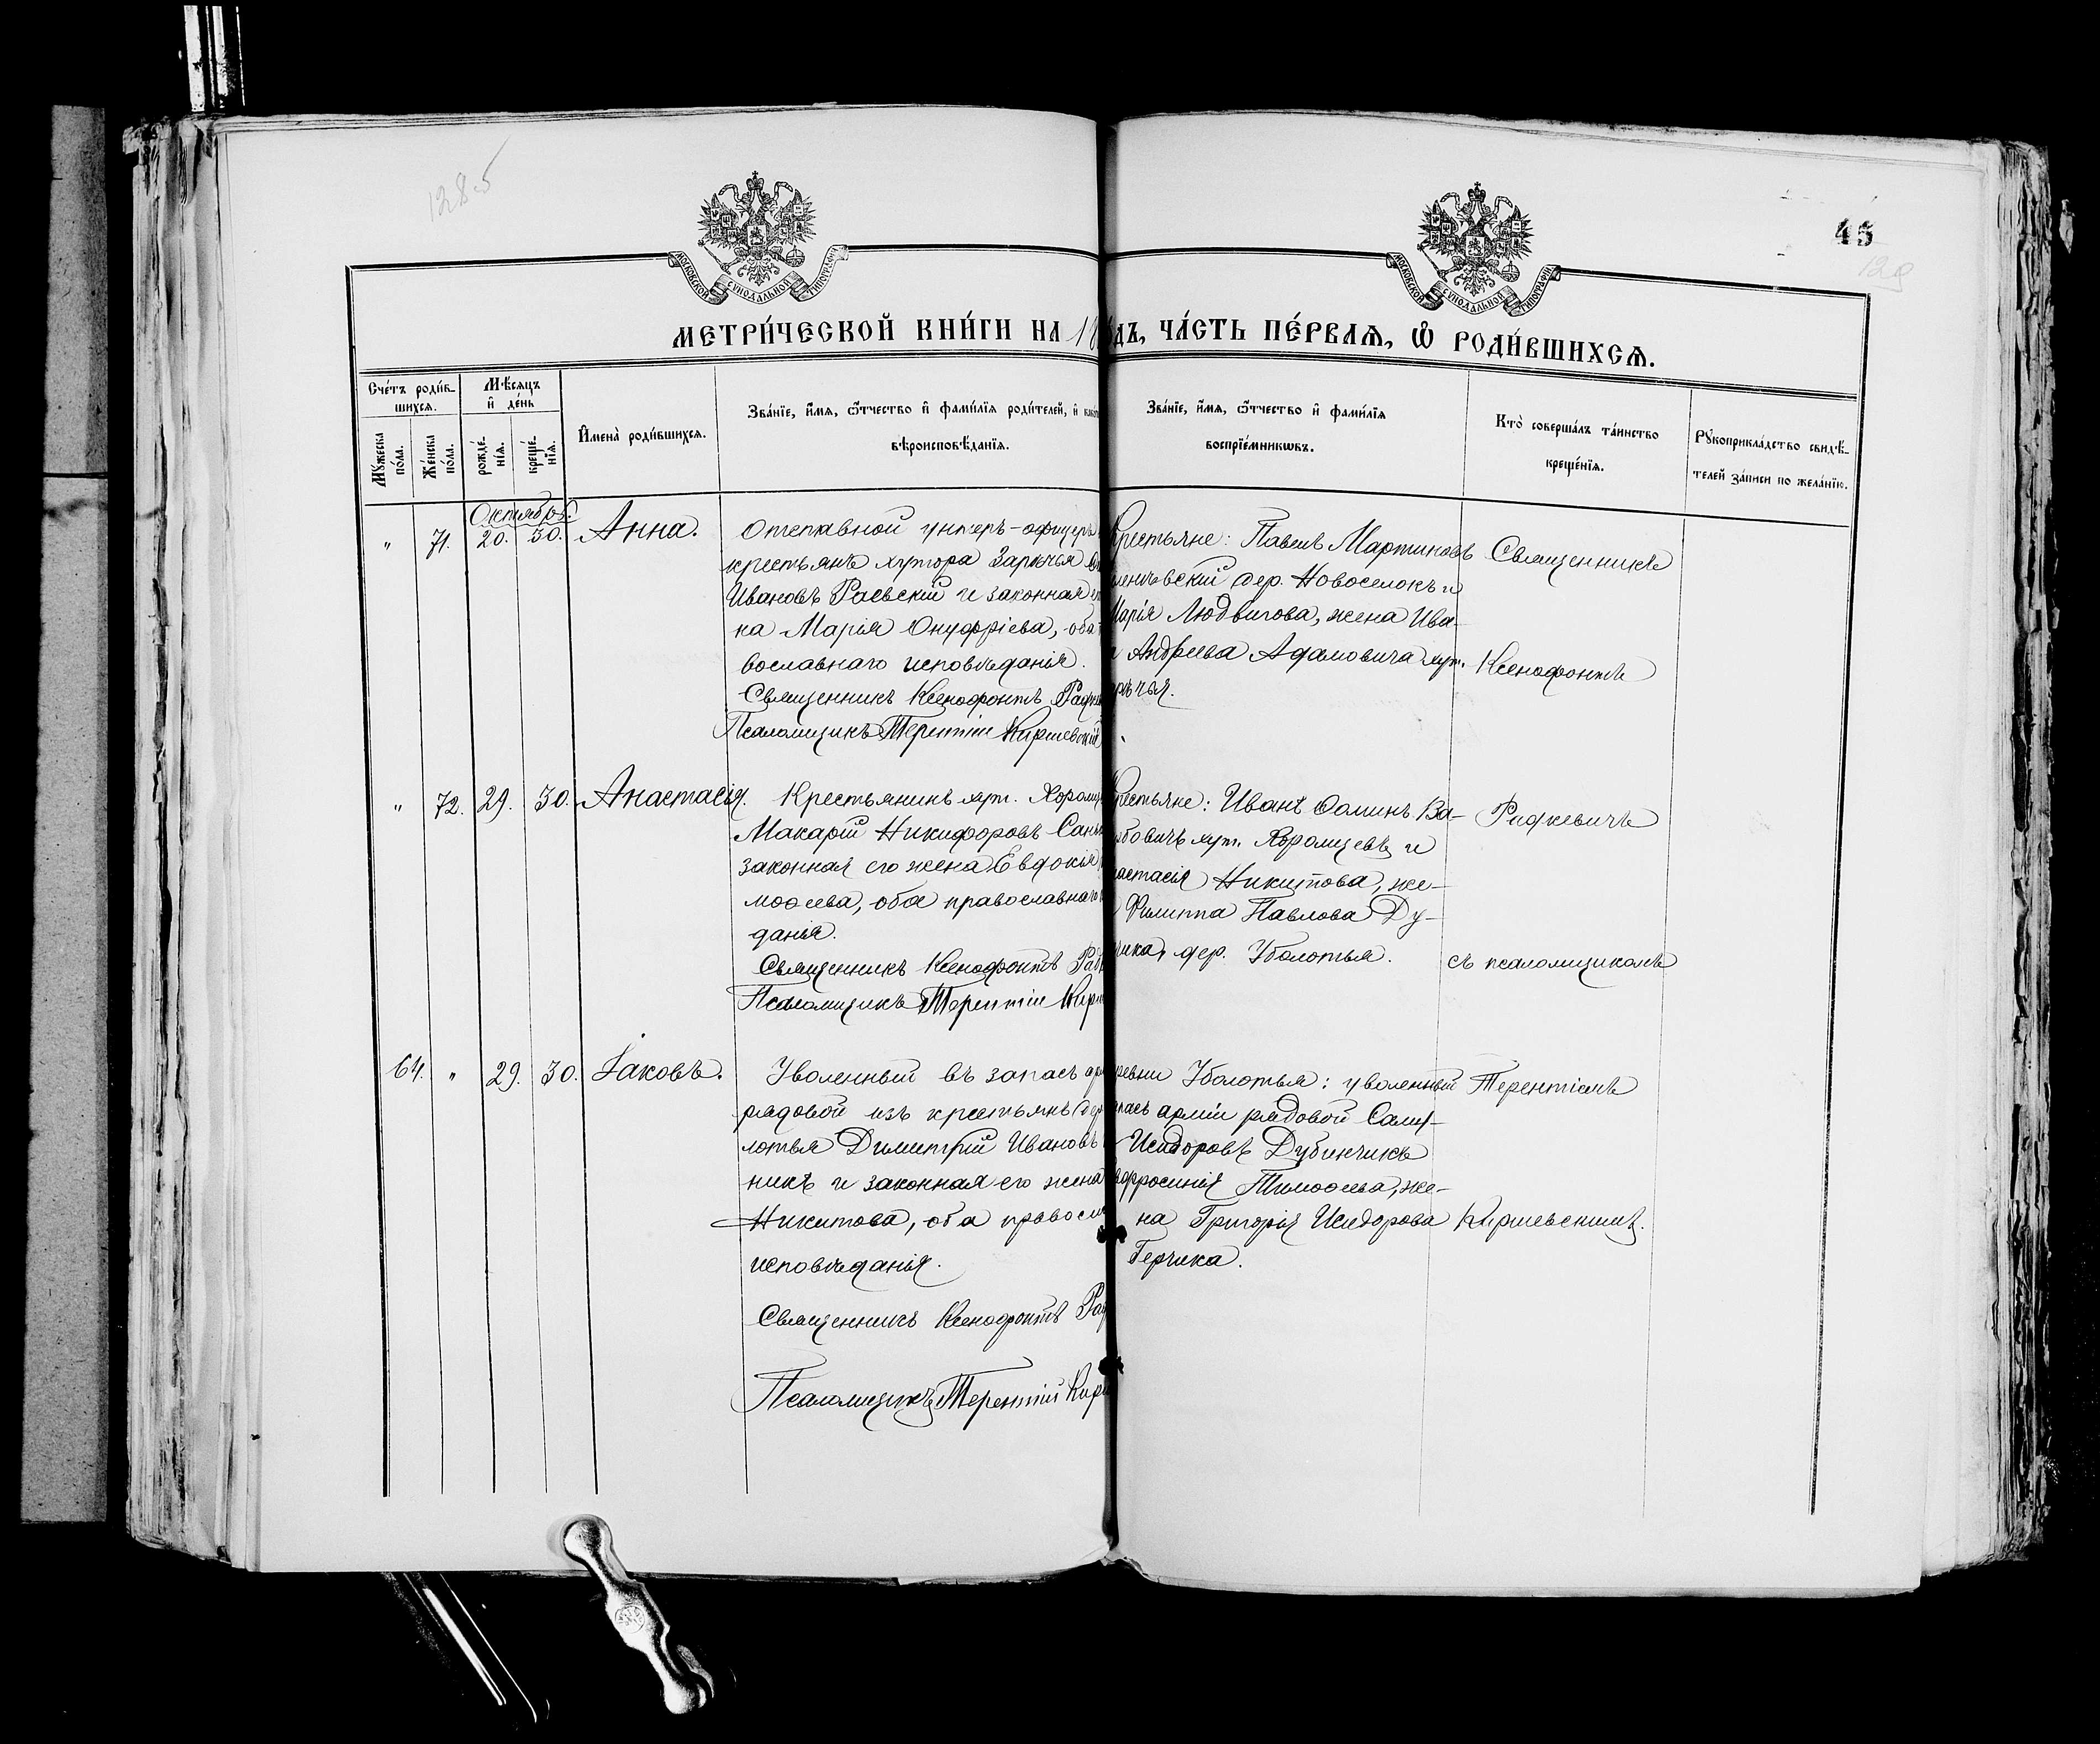 1285
45
129
МОСКОВСКОЙ СУНОДАЛЬНОЙ ТИПОГРАФІИ
МОСКОВСКОЙ СУНОДАЛЬНОЙ ТИПОГРАФІИ
МЕТРИ́ЧЕСКОЙ КНИ́ГИ НА 18
ДЪ, ЧА́СТЬ ПЕ́РВАѦ, Ѽ РОДИ́ВШИХСѦ.
Сче́тъ роди́в-
шихсѧ.
Мꙋжеска по́ла.
Же́нска по́ла.
Мѣ́сѧцъ
и҆ де́нь
рожде́-
нїѧ.
креще́-
нїѧ.
И҆мена̀ роди́вшихсѧ.
Зва́нїе, и҆́мѧ, ѻ҆́тчество и҆ фами́лїѧ роди́телей, и҆
вѣроисповѣ́данїѧ.
Зва́нїе, и҆́мѧ, ѻ҆́тчество и҆ фами́лїѧ
воспрїе́мникѡвъ.
Кто̀ соверша́лъ та́инство
креще́нїѧ.
Рꙋкоприкла́дство свидѣ́-
телей за́писи по жела́нїю.
Октябрь.
" 71. 20. 30. Анна.
Отставной унтеръ-офицеръ
крестьянъ хутора Зарѣчья
Ивановъ Раевскій и законная
на Марія Онуфріева, оба
вославнаго исповѣданія.
Священникъ Ксенофонтъ
Псаломщикъ Терентій Киршевскій
Крестьяне: Павелъ Мартиновъ
дер. Новоселокъ и
Марія Людвигова, жена Ива-
Андреева Адамовича хут.
рѣчья.
Священникъ
Ксенофонтъ
" 72. 29. 30. Анастасія.
Крестьянинъ хут. Хоромц
Макарій Никифоровъ
законная его жена Евдокія
моѳеева, оба православнаго
данія.
Священникъ Ксенофонтъ
Псаломщикъ Терентій
рестьяне: Иванъ Ѳоминъ Ва-
бовичъ хут. Хоромцевъ и
настасія Никитова, же-
Филиппа Павлова Ду-
чика, дер. Уболотья.
Радкевичъ
съ псаломщикомъ
64. " 29. 30. Іаковъ.
Уволенный въ запасъ ар
рядовой изъ крестьянъ дер
лотья Димитрій Ивановъ
никъ и законная его жена
Никитова, оба правосла
исповѣданія.
Священникъ Ксенофонтъ
Псаломщикъ Терентій
ревни Уболотья: уволенный
пасъ арміи рядовой Саму-
Исидоровъ Дубинчикъ
фросинія Тимоѳеева, же-
на Григорія Исидорова
Герчика.
Терентіемъ
Киршевскимъ.